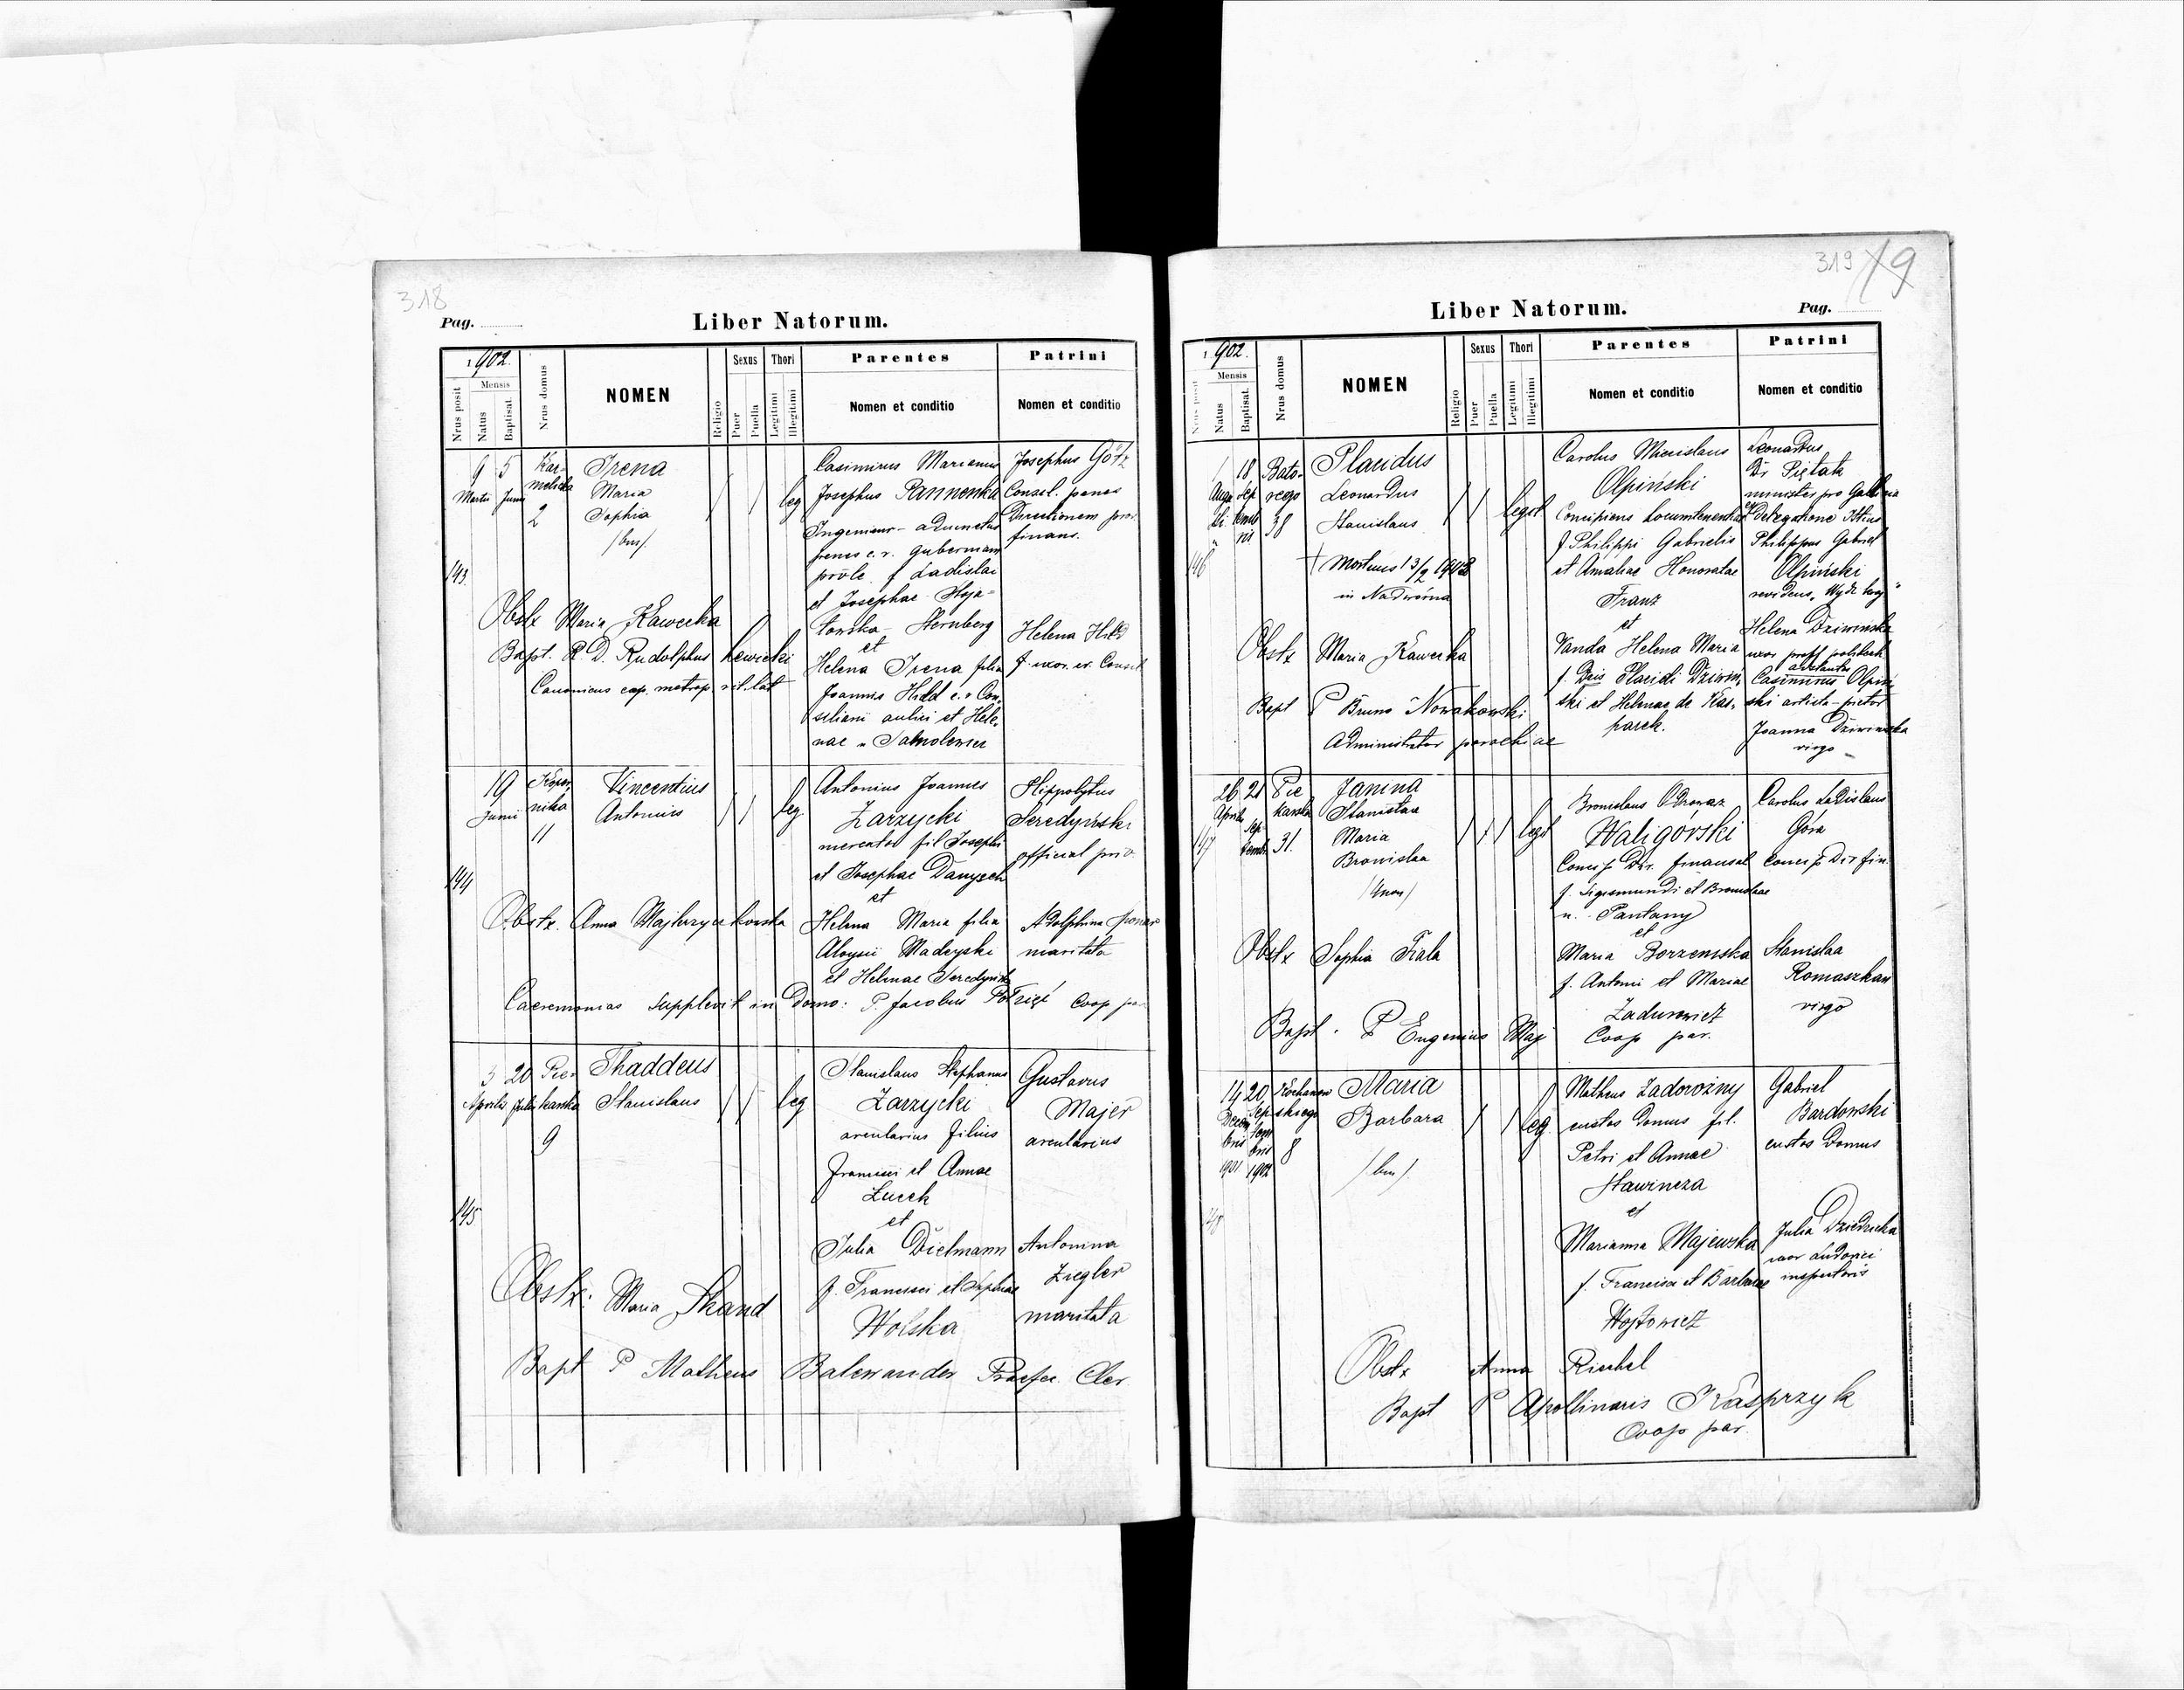 318
Pag.
Liber Natorum.
1902.
Mensis
Nrus posit
Natus
Baptisat.
Nrus domus
NOMEN
Religio
Sexus
Puer
Puella
Thori
Legitimi
Illegitimi
Parentes
Nomen et conditio
Patrini
Nomen et conditio
143.
9 5
Martii Junii
Kar-
melicka
2
Irena
Maria
Sophia
/bm/.
leg
Casimirus Marianus
Josephus Pannenka
Ingenieur - adiunctus
penes c. r. gubernium
prov̄le. f Ladislai
et Josephae Stoja-
towska - Sternberg
et
Helena Irena filia
Joannis Hild c. r Con-
siliarii aulici et Hele-
nae
Josephus Götz
Consil. penes
Directionem prov.
finans.
Helena Hild
f. uxor. cr. Consil
Obstx Maria Kawecka
Bapt. R. D. Rudolphus Lewicki
Canonicus cap. metrop. rit. lat
144
19
Junii
Koper-
nika
11
Vincentius
Antonius
leg
Antonius Joannes
Zarzycki
mercator fil Josephi
et Josephae Danysch
et
Helena Maria filia
Aloysii Madeyski
et Helenae Seredyńska
Hippolytus
Seredyński
official priv.
Adolphina
maritata
Obstx. Anna
Caeremonias supplevit in domo: P. Jacobus coop par
145
3 20
Aprilis Julii
Pie-
karska
9
Thaddeus
Stanislaus
leg
Stanislaus Stephanus
Zarzycki
arcularius filius
Francisci et Annae
Zucek
et
Julia Dielmann
f. Francisci et Sophiae
Wolska
Gustavus
Majer
arcularius
Antonina
Ziegler
maritata
Obstx: Maria Skand
Bapt P Matheus Balewander Praefec. Cler.
319 19
Liber Natorum.
Pag.
1902.
Mensis
Nrus posit
Natus
Baptisat.
Nrus domus
NOMEN
Religio
Sexus
Puer
Puella
Thori
Legitimi
Illegitimi
Parentes
Nomen et conditio
Patrini
Nomen et conditio
146
1 18
Augu
sti
Sep
temb
ris
Bato-
rego
38
Placidus
Leonardus
Stanislaus
† Mortuus 13/2 1903
in Nadwórna
legit
Carolus Miecislaus
Olpiński
Concipiens Locumtenentiae
f. Philippi Gabrielis
et Amaliae Honoratae
Franz
et
Vanda Helena Maria
f. Dris Placidi Dziwiń-
ski et Helenae de Kas-
parek.
Leonardus
Dr Piętak
minister pro Galicia
Philippus Gabriel
Olpiński
Helena Dziwińska
uxor prof. politech
adstantes
Casimirus Olpiń-
ski artista - pictor
Joanna Dziwińska
virgo
Obstx Maria Kawecka
Bapt P Bruno Nowakowski
Administrator parochiae
147
26 21
Aprilis
Sep
temb
Pie
karska
31.
Janina
Stanislaa
Maria
Bronislaa
legit
Bronislaus Odrowąż
Waligórski
Concip Dir. finansal
f. Sigismundi et Bronislaae
n. Pantany
et
Maria Borzemska
f. Antoni et Mariae
Zadurowicz
Carolus Ladislaus
Góra
Concip Dir fin.
Stanislaa
Romaszkan
virgo
Obstx Sophia Fiala
Bapt. P Eugenius Maj Coop par.
148
14 20
Decem
bris
1901
Sep
tem
bris
1902
Kochanow
skiego
8
Maria
Barbara
/bm/.
leg
Matheus Zadorożny
custos domus fil.
Petri et Annae
Sławincza
et
Marianna Majewska
f. Francisci et Barbarae
Wojtowicz
Gabriel
Bardowski
custos domus
Julia Dziedzicka
uxor Ludovici
inspectoris
Obstx Anna Riechel
Bapt P Apollinaris Kasprzyk
Coop par.